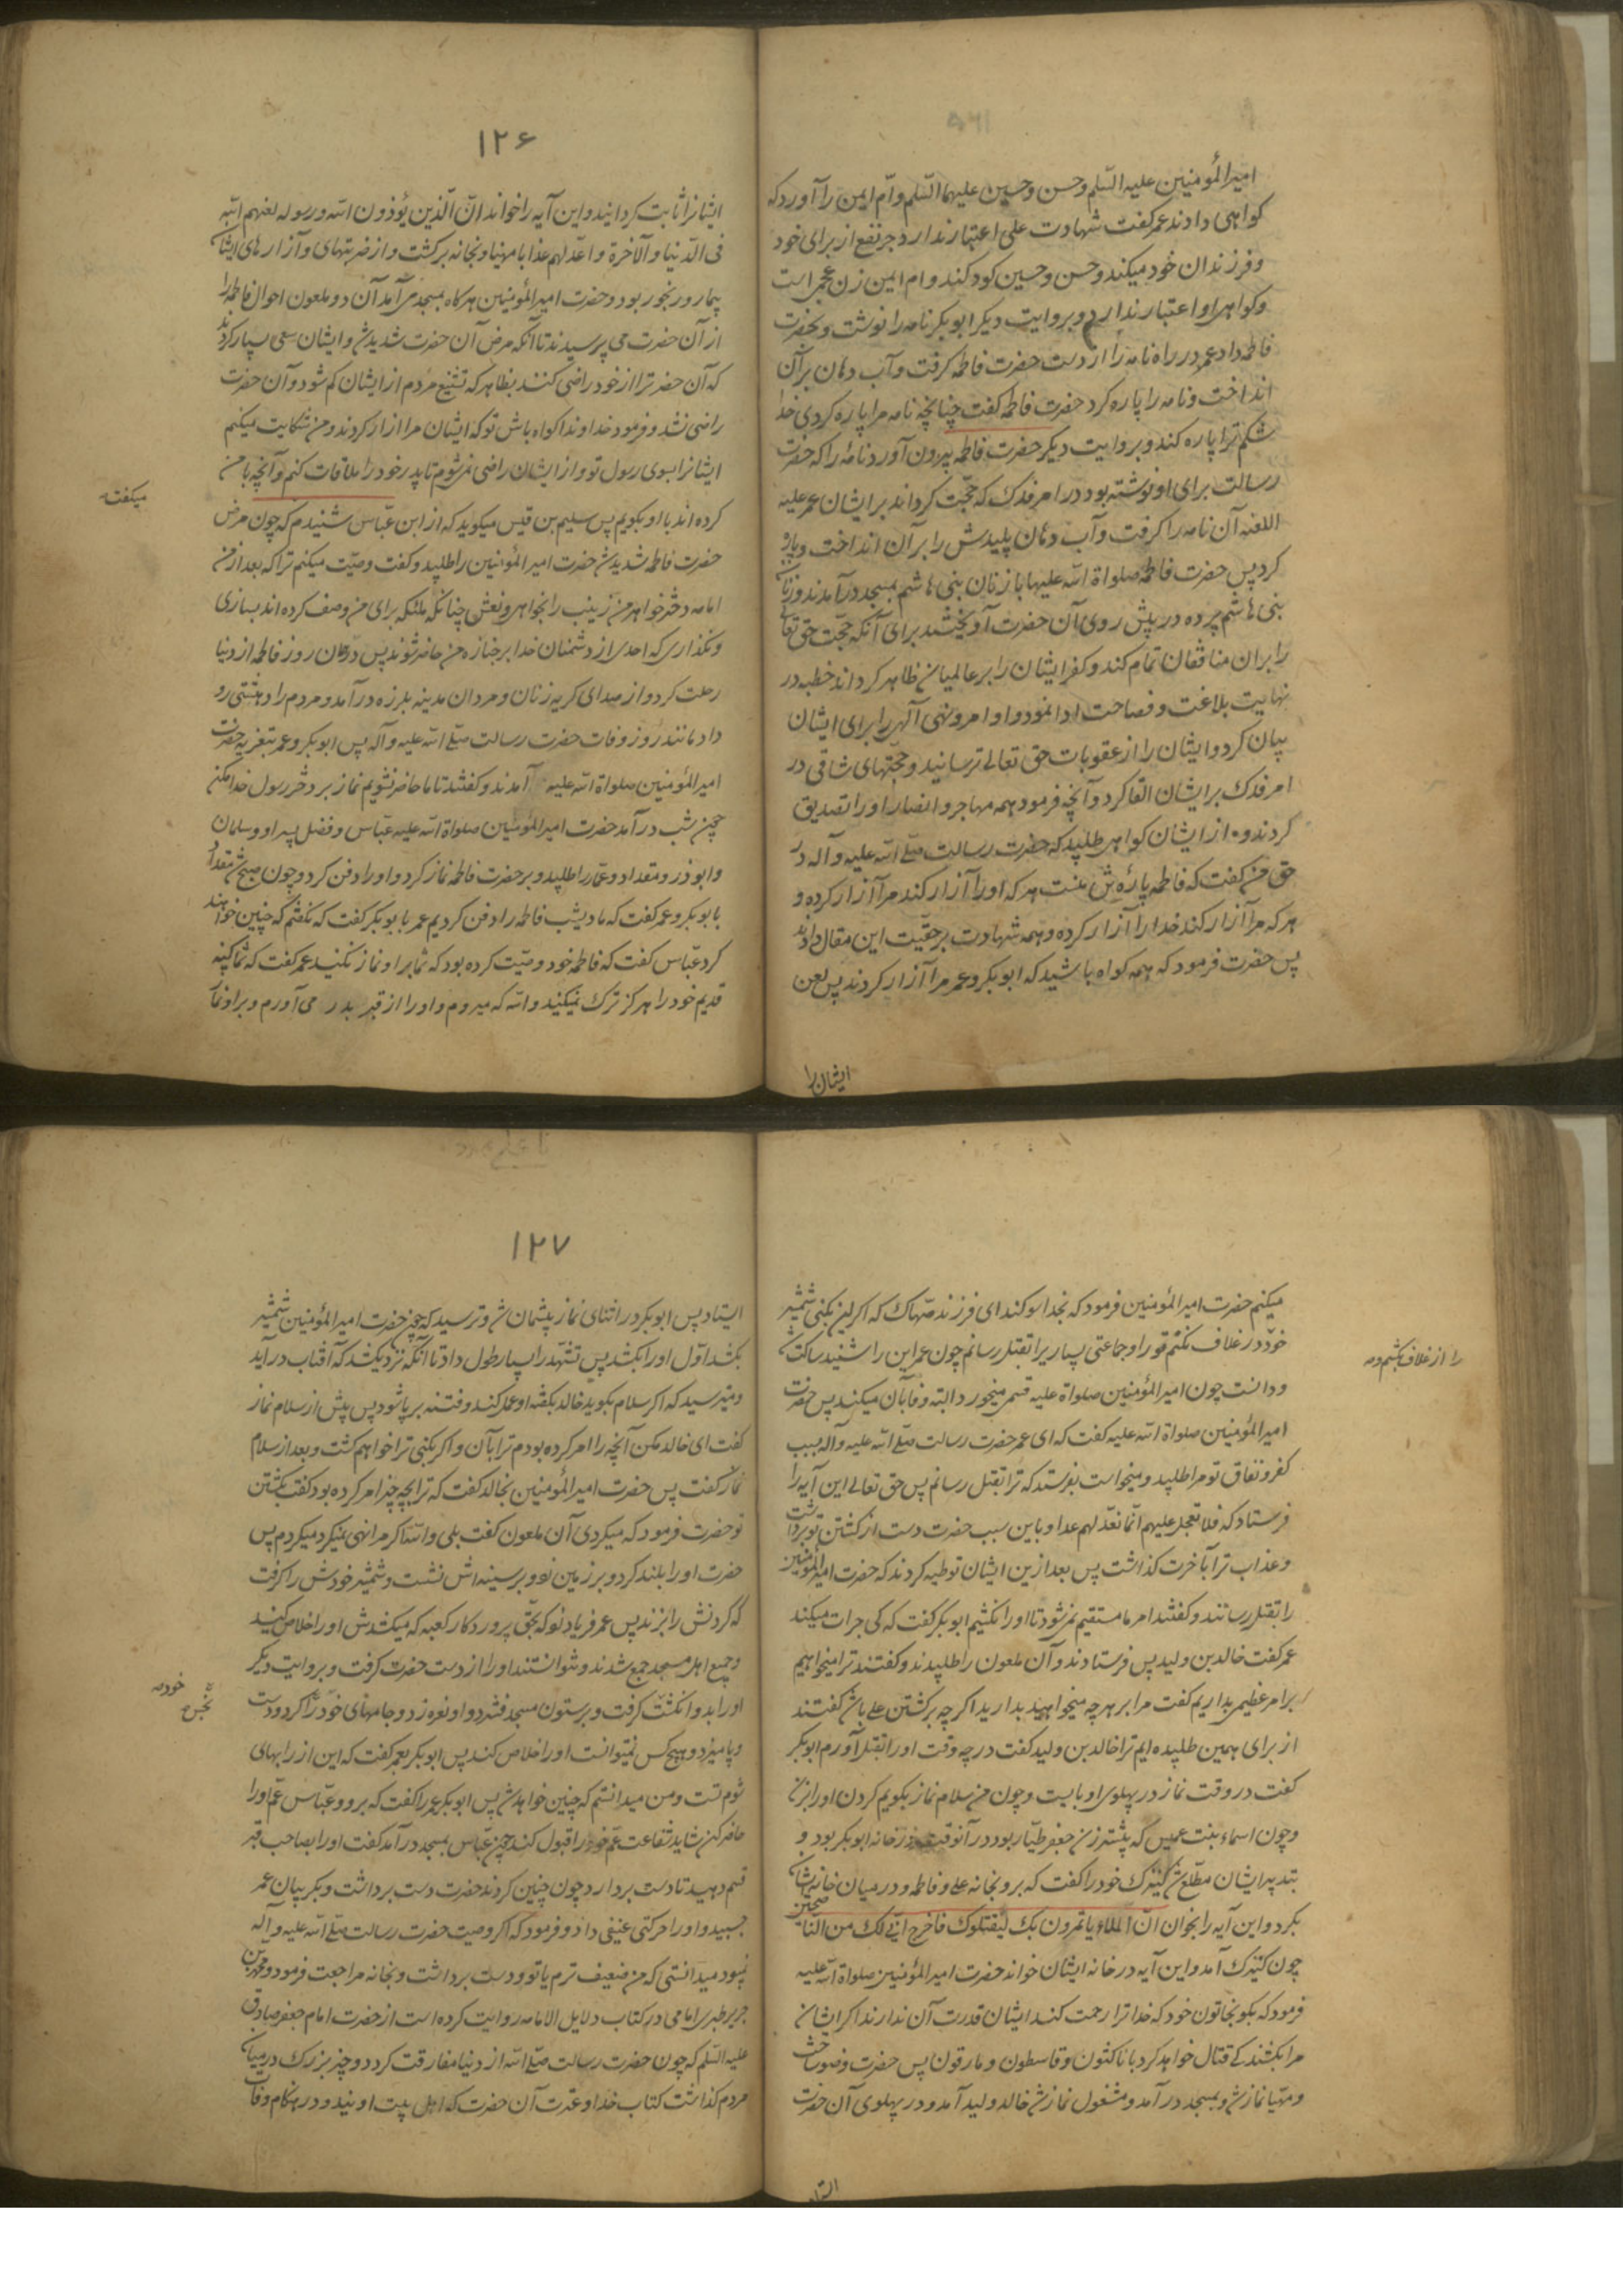 امیرالمؤمنین علیه السّلم وحسن وحسین علیهما السّلم وامّ ایمن را آورد که
کواهی دادند عمر کفت شهادت علی اعتبار ندارد جرّ نفع از برای خود
وفرزندان خود میکند وحسن وحسین کودکند وام ایمن زن عجمی است
وکواهی او اعتبار ندارد وبروایت دیکر ابوبکر نامه را نوشت وبحضرت
فاطمه داد عمر در راه نامه را از دست حضرت فاطمه کرفت وآب دهان بر آن
انداخت ونامه را پاره کرد حضرت فاطمه کفت چنانچه نامه مرا پاره کردی خدا
شکم ترا پاره کند وبروایت دیکر حضرت فاطمه بیرون آورد نامهٔ را که حضرت
رسالت برای او نوشته بود در امر فدک که حجّت کرداند بر ایشان عمر علیه
اللعنه آن نامه را کرفت وآب دهان پلیدش را بر آن انداخت وپاره
کرد پس حضرت فاطمه صلواة الله علیها با زنان بنی هاشم بمسجد در آمدند وزنان
بنی هاشم پرده در پیش روی آن حضرت آویختند برای آنکه حجّت حق تعالی
را بر آن منافقان تمام کند وکفر ایشان را بر عالمیان ظاهر کرداند خطبه در
نهایت بلاغت وفصاحت ادا نمود واوامر ونهی آلهی را برای ایشان
بیان کرد وایشان را از عقوبات حق تعالی ترسانید وحجّتهای شافی در
امر فدک بر ایشان القا کرد وآنچه فرمود همه مهاجر وانصار او را تصدیق
کردند و از ایشان کواهی طلبید که حضرت رسالت صلّی الله علیه وآله در
حق من کفت که فاطمه پارهٔ تن منست هر که او را آزار کند مرا آزار کرده و
هر که مرا آزار کند خدا را آزار کرده وهمه شهادت بر حقیّت این مقال دادند
پس حضرت فرمود که همه کواه باشید که ابوبکر وعمر مرا آزار کردند پس لعن
ایشان را
۱۲۶
ایشانرا ثابت کردانید واین آیه را خواند انّ الّذین یؤذون الله ورسوله لعنهم الله
فی الدّنیا والآخرة واعدّ لهم عذابا مهینا وبخانه برکشت واز ضربتهای وآزارهای ایشان
بیمار ورنجور بود وحضرت امیرالمؤمنین هرکاه بمسجد می آمد آن دو ملعون احوال فاطمه را
از آن حضرت می پرسیدند تا آنکه مرض آن حضرت شدید شد وایشان سعی بسیار کردند
که آن حضرترا از خود راضی کنند بظاهر که تشنیع مردم از ایشان کم شود وآن حضرت
راضی نشد وفرمود خداوندا کواه باش تو که ایشان مرا آزار کردند ومن شکایت میکنم
ایشانرا بسوی رسول تو واز ایشان راضی نمیشوم تا پدر خود را ملاقات کنم وآنچه با من
میکفت
کرده اند با او بکویم پس سلیم بن قیس میکوید که از ابن عبّاس شنیدم که چون مرض
حضرت فاطمه شدید شد حضرت امیرالمؤمنین را طلبید وکفت وصیّت میکنم ترا که بعد از من
امامه دختر خواهر من زینب را بخواهی ونعش چنانکه ملئکه برای من وصف کرده اند بسازی
ونکذاری که احدی از دشمنان خدا بر جنازه من حاضر شوند پس در همان روز فاطمه از دنیا
رحلت کرد واز صدای کریه زنان ومردان مدینه بلرزه در آمد ومردم را دهشتی رو
داد مانند روز وفات حضرت رسالت صلّی الله علیه وآله پس ابوبکر وعمر بتعزیه حضرت
امیرالمؤمنین صلواة الله علیه آمدند وکفتند تا ما حاضر نشویم نماز بر دختر رسول خدا مکن
چون شب در آمد حضرت امیرالمؤمنین صلواة الله علیه عبّاس وفضل پسر او وسلمان
وابوذر ومقداد وعمّار را طلبید وبر حضرت فاطمه نماز کرد واو را دفن کرد وچون صبح شد مقداد
بابوبکر وعمر کفت که ما دیشب فاطمه را دفن کردیم عمر بابوبکر کفت که نکفتم که چنین خواهند
کرد عبّاس کفت که فاطمه خود وصیّت کرده بود که شما بر او نماز نکنید عمر کفت که شما کینه
قدیم خود را هرکز ترک نمیکنید والله که میروم واو را از قبر بدر می آورم وبر او نماز
میکنم حضرت امیرالمؤمنین فرمود که بخدا سوکند ای فرزند صهّاک که اکر این بکنی شمشیر
خود در غلاف نکنم تو را وجماعتی بسیار را بقتل رسانم چون عمر این را شنید ساکت شد
را از غلاف بکشم ومه
ودانست چون امیرالمؤمنین صلواة الله علیه قسمی میخورد البته وفا بآن میکند پس حضرت
امیرالمؤمنین صلواة الله علیه کفت که ای عمر حضرت رسالت صلّی الله علیه وآله بسبب
کفر ونفاق تو مرا طلبید ومیخواست بفرستد که ترا بقتل رسانم پس حق تعالی این آیه را
فرستاد که فلا تعجل علیهم انّما نعدّ لهم عدا وباین سبب حضرت دست از کشتن تو برداشت
وعذاب ترا بآخرت کذاشت پس بعد ازین ایشان توطیه کردند که حضرت امیرالمؤمنین
را بقتل رسانند وکفتند امر ما مستقیم نمیشود تا او را نکشیم ابوبکر کفت که کی جرات میکند
عمر کفت خالد بن ولید پس فرستادند وآن ملعون را طلبیدند وکفتند ترا میخواهیم
بر امر عظیمی بداریم کفت مرا بر هر چه میخواهید بدارید اکر چه بر کشتن علی باشد کفتند
از برای همین طلبیده ایم ترا خالد بن ولید کفت در چه وقت او را بقتل آورم ابوبکر
کفت در وقت نماز در پهلوی او بایست وچون من سلام نماز بکویم کردن او را بزن
وچون اسماء بنت عمیس که پیشتر زن جعفر طیّار بود در آنوقت در خانه ابوبکر بود و
بتدبیر ایشان مطّلع شد کنیزک خود را کفت که برو بخانه علی وفاطمه ودر میان خانه ایشان
بکرد واین آیه را بخوان انّ الملاء یاتمرون بک لیقتلوک فاخرج انّی لک من النّاصحین
چون کنیزک آمد واین آیه در خانه ایشان خواند حضرت امیرالمؤمنین صلواة الله علیه
فرمود که بکو بخاتون خود که خدا ترا رحمت کند ایشان قدرت آن ندارند اکر ایشان
مرا بکشند کی قتال خواهد کرد با ناکثون وقاسطون ومارقون پس حضرت وضو ساخت
ومهیّا نماز شد وبمسجد در آمد ومشغول نماز شد خالد ولید آمد ودر پهلوی آن حضرت
۱۲۷
ایستاد پس ابوبکر در اثنای نماز پشیمان شد وترسید که چون حضرت امیرالمؤمنین شمشیر
بکشد اوّل او را بکشد پس تشهّد را بسیار طول داد تا آنکه نزدیک شد که آفتاب در آید
ومیترسید که اکر سلام بکوید خالد بکفته او عمل کند وفتنه بر پا شود پس پیش از سلام نماز
کفت ای خالد مکن آنچه را امر کرده بودم ترا بآن واکر بکنی ترا خواهم کشت وبعد از سلام
نماز کفت پس حضرت امیرالمؤمنین بخالد کفت که ترا بچه چیز امر کرده بود کفت بکشتن
تو حضرت فرمود که میکردی آن ملعون کفت بلی والله اکر مرا نهی نمیکرد میکردم پس
حضرت او را بلند کرد وبر زمین زد وبر سینه اش نشست وشمشیر خودش را کرفت
که کردنش را بزند پس عمر فریاد نمود که بحقّ پروردکار کعبه که میکشدش او را خلاص کنید
وجمیع اهل مسجد جمع شدند ونتوانستند او را از دست حضرت کرفت وبروایت دیکر
او را بدو انکشت کرفت وبر ستون مسجد فشرد واو نعره زد وجامهای خود را کرد ودست
نجس خود
وپا میزد وهیچ کس نمیتوانست او را خلاص کند پس ابوبکر بعمر کفت که این از رایهای
شوم تست ومن میدانستم که چنین خواهد شد پس ابوبکر عمر را کفت که برو وعبّاس عمّ او را
حاضر کن شاید شفاعت عمّ خود را قبول کند چون عبّاس بمسجد در آمد کفت او را بصاحب قبر
قسم دهید تا دست بردارد چون چنین کردند حضرت دست برداشت وبکریبان عمر
چسبید واو را حرکتی عنیفی داد وفرمود که اکر وصیت حضرت رسالت صلّی الله علیه وآله
نبود میدانستی که من ضعیف ترم یا تو ودست برداشت وبخانه مراجعت فرمود ومحمد بن
جریر طبری امامی در کتاب دلایل الامامه روایت کرده است از حضرت امام جعفر صادق
علیه السّلم که چون حضرت رسالت صلّی الله از دنیا مفارقت کرد دو چیز بزرک در میان
مردم کذاشت کتاب خدا وعترت آن حضرت که اهل بیت اویند ودر هنکام وفات